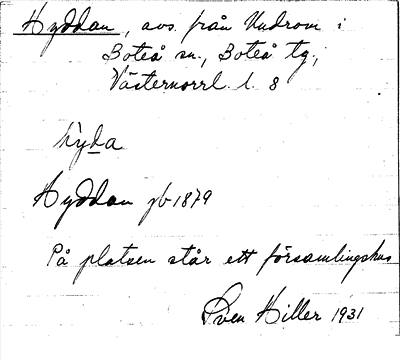 Hyddan, avs. från Undrom i
Boteå sn., Boteå tg.,
Västernorrl. l. 8
hyda
Hyddan jb 1879
På platsen står ett församlingshus
Sven Hiller 1931